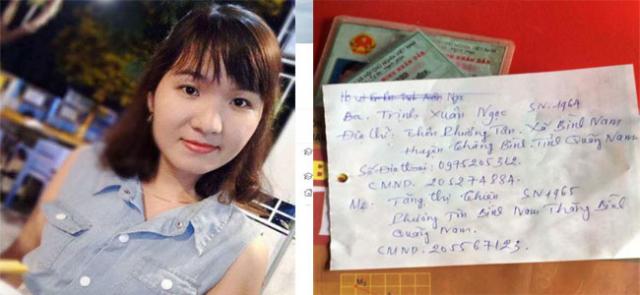 NHÂN DÂN
Ba. Trịnh Xuân Ngọc SN. 1964
Địa chỉ: Thôn Phương Tân. Xã Bình Nam
Huyện. Thăng Bình. Tỉnh Quảng Nam
Số Điện thoại: 0975205312.
CMND. 205274884.
Mẹ. Tăng Thị SN1965
Phương Tân Bình Nam Thăng Bình
Quảng Nam.
CMND. 205567123.